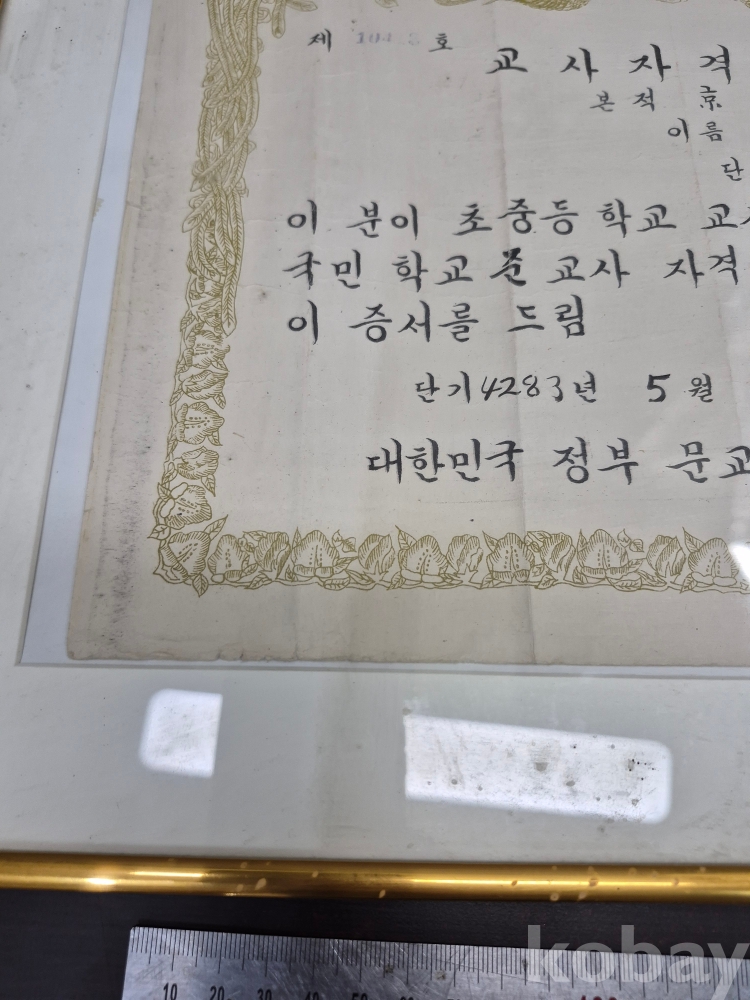 제 호
교 사 자 격
본 적 京
이 름
단
이 분이 초중등 학교 교
국민 학교 교사 자격
이 증서를 드림
단기 4283년 5 월
대한민국 정부 문교
kobay
10 20 30 40 50 60